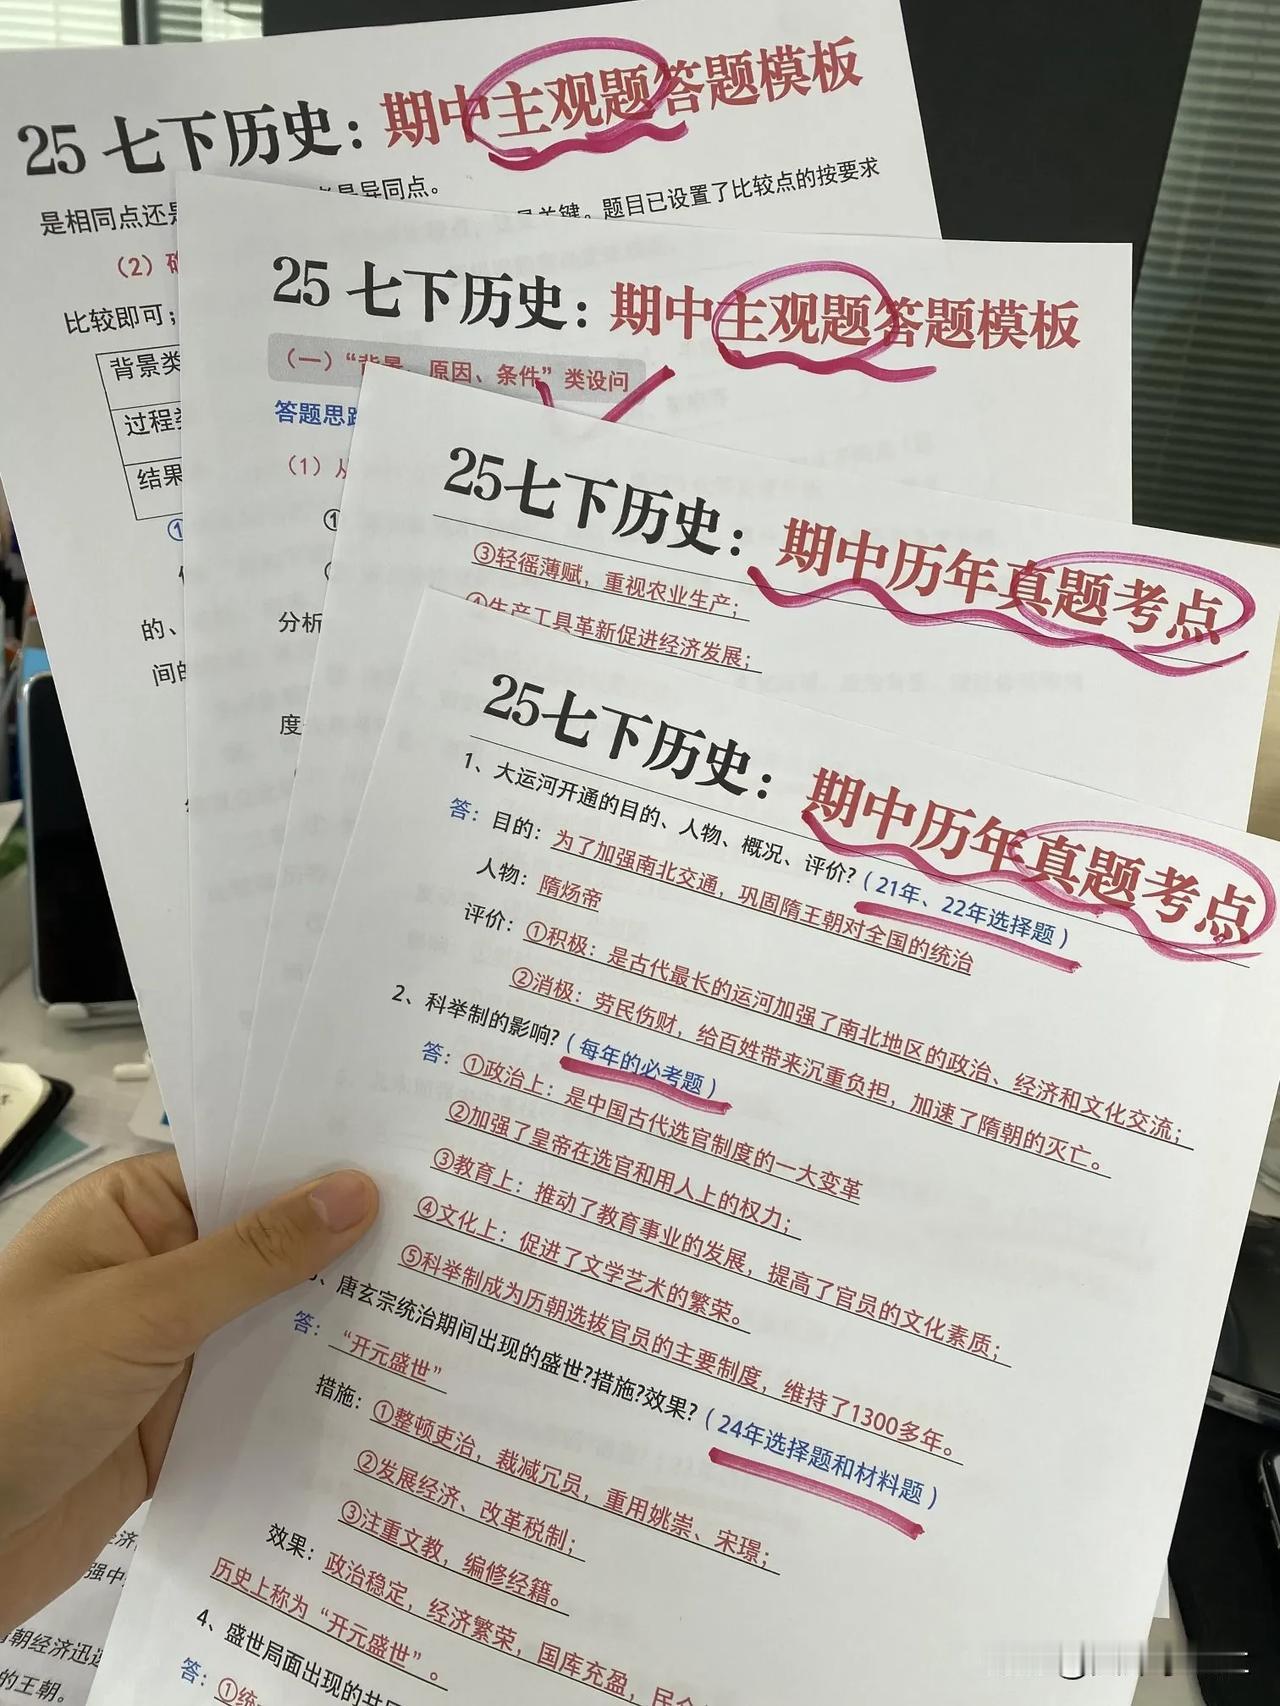 25 七下历史：期中主观题答题模板
是相同点还是
是异同点。
是关键。题目已设置了比较点的按要求
（2）
比较即可；
背景类
过程类
结果
①
的、
间的
25 七下历史：期中主观题答题模板
（一）“背景、原因、条件”类设问
答题思路
（1）从
①
分析
度
25七下历史：期中历年真题考点
③轻徭薄赋，重视农业生产；
④生产工具革新促进经济发展；
25七下历史：期中历年真题考点
1、大运河开通的目的、人物、概况、评价?（21年、22年选择题）
答：目的：为了加强南北交通，巩固隋王朝对全国的统治
人物：隋炀帝
评价：①积极：是古代最长的运河加强了南北地区的政治、经济和文化交流；
②消极：劳民伤财，给百姓带来沉重负担，加速了隋朝的灭亡。
2、科举制的影响?（每年的必考题）
答：①政治上：是中国古代选官制度的一大变革
②加强了皇帝在选官和用人上的权力；
③教育上：推动了教育事业的发展，提高了官员的文化素质；
④文化上：促进了文学艺术的繁荣。
⑤科举制成为历朝选拔官员的主要制度，维持了1300多年。
、唐玄宗统治期间出现的盛世?措施?效果?（24年选择题和材料题）
答：“开元盛世”
措施：①整顿吏治，裁减冗员，重用姚崇、宋璟；
②发展经济、改革税制；
③注重文教，编修经籍。
效果：政治稳定，经济繁荣，国库充盈，民众
历史上称为“开元盛世”。
4、盛世局面出现的共
答：①统一
强中
朝经济迅速
的王朝。